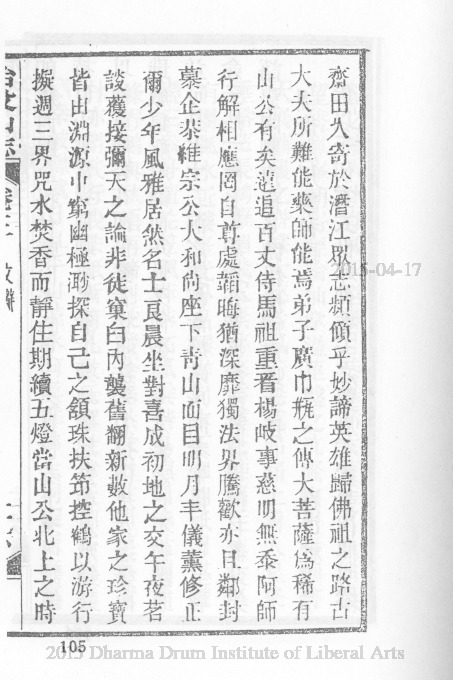 齋田久寄於潛江眾志頻傾乎妙諦英雄歸佛祖之路古
大夫所難能藥師能焉弟子廣巾瓶之傳大菩薩為稀有
山公有矣遠追百丈侍馬祖重晋楊岐事慈明無忝阿師
行解相應罔自尊處韜晦猶深靡獨法界騰歡亦且鄰封
慕企恭維宗公大和尚座下青山面目明月丰儀薰修正
爾少年風雅居然名士良晨坐對喜成初地之交午夜茗
談獲接彌天之論非徒窠臼內襲舊翻新數他家之珍寶
皆由淵源中窮幽極渺探自己之頷珠扶笻控鶴以游行
撰週三界咒水焚香而靜住期續五燈當山公北上之時
2015-04-17
105
2015 Dharma Drum Institute of Liberal Arts